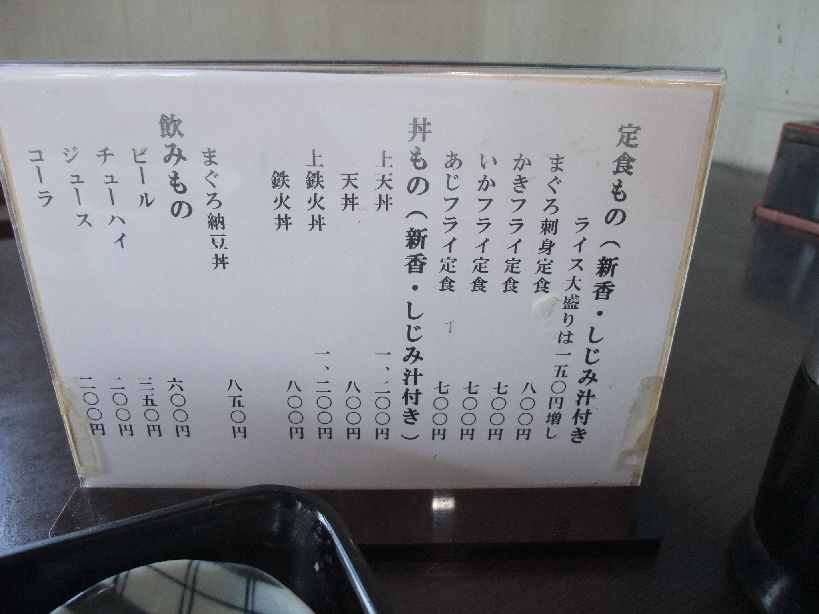 定食もの（新香・しじみ汁付き
ライス大盛りは一五〇円増し
まぐろ刺身定食 八〇〇円
かきフライ定食 七〇〇円
いかフライ定食 七〇〇円
あじフライ定食 七〇〇円
丼もの（新香・しじみ汁付き）
上天丼 一、二〇〇円
天丼 八〇〇円
上鉄火丼 一、二〇〇円
鉄火丼 八〇〇円
まぐろ納豆丼 八五〇円
飲みもの
ビール 六〇〇円
チューハイ 三五〇円
ジュース 二〇〇円
コーラ 二〇〇円